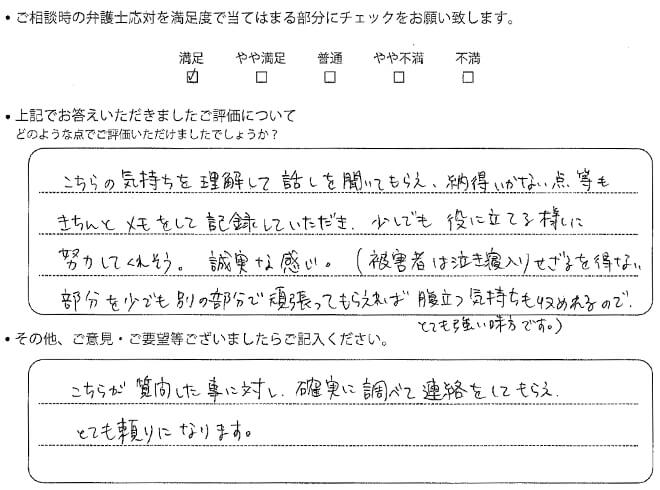 ・ご相談時の弁護士応対を満足度で当てはまる部分にチェックをお願い致します。
満足 やや満足 普通 やや不満 不満
☑ □ □ □ □
・上記でお答えいただきましたご評価について
どのような点でご評価いただけましたでしょうか？
こちらの気持ちを理解して話しを聞いてもらえ、納得いかない点等も
きちんとメモをして記録していただき、少しでも役に立てる様に
努力してくれそう。誠実な感じ。(被害者は泣き寝入りせざるを得ない
部分を少でも別の部分で頑張ってもらえれば腹立つ気持ちも収めれるので、
とても強い味方です。)
・その他、ご意見・ご要望等ございましたらご記入ください。
こちらが質問した事に対し、確実に調べて連絡をしてもらえ、
とても頼りになります。